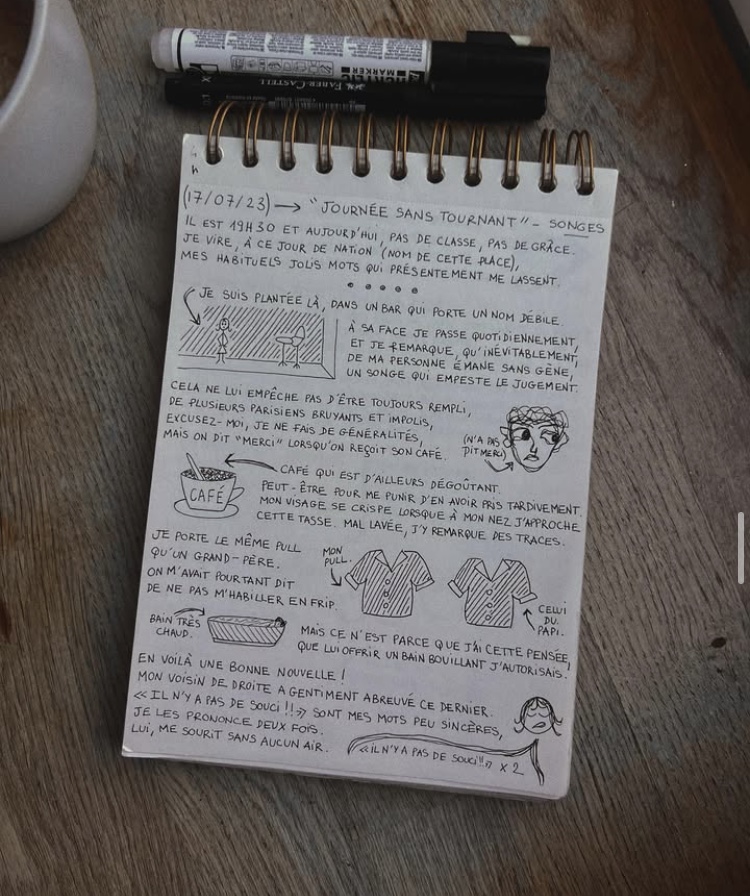 ACRYLIC
MARKER
FABER-CASTELL
(17/07/23) → "JOURNÉE SANS TOURNANT" - SONGES
IL EST 19H30 ET AUJOURD'HUI, PAS DE CLASSE, PAS DE GRÂCE.
JE VIRE, À CE JOUR DE NATION (NOM DE CETTE PLACE),
MES HABITUELS JOLIS MOTS QUI PRÉSENTEMENT ME LASSENT.
JE SUIS PLANTÉE LÀ, DANS UN BAR QUI PORTE UN NOM DÉBILE.
À SA FACE JE PASSE QUOTIDIENNEMENT,
ET JE REMARQUE, QU'INÉVITABLEMENT,
DE MA PERSONNE ÉMANE SANS GÈNE,
UN SONGE QUI EMPESTE LE JUGEMENT.
CELA NE LUI EMPÊCHE PAS D'ÊTRE TOUJOURS REMPLI,
DE PLUSIEURS PARISIENS BRUYANTS ET IMPOLIS,
EXCUSEZ-MOI, JE NE FAIS DE GÉNÉRALITÉS,
MAIS ON DIT "MERCI" LORSQU'ON REÇOIT SON CAFÉ.
(N'A PAS
DIT MERCI)
CAFÉ
CAFÉ QUI EST D'AILLEURS DÉGOÛTANT.
PEUT-ÊTRE POUR ME PUNIR D'EN AVOIR PRIS TARDIVEMENT.
MON VISAGE SE CRISPE LORSQUE À MON NEZ J'APPROCHE
CETTE TASSE. MAL LAVÉE, J'Y REMARQUE DES TRACES.
JE PORTE LE MÊME PULL
QU'UN GRAND-PÈRE.
ON M'AVAIT POURTANT DIT
DE NE PAS M'HABILLER EN FRIP.
MON
PULL.
CELUI
DU
PAPI.
BAIN TRÈS
CHAUD.
MAIS CE N'EST PARCE QUE J'AI CETTE PENSÉE,
QUE LUI OFFRIR UN BAIN BOUILLANT J'AUTORISAIS.
EN VOILÀ UNE BONNE NOUVELLE !
MON VOISIN DE DROITE A GENTIMENT ABREUVÉ CE DERNIER.
« IL N'Y A PAS DE SOUCI !! » SONT MES MOTS PEU SINCÈRES,
JE LES PRONONCE DEUX FOIS.
LUI, ME SOURIT SANS AUCUN AIR.
« IL N'Y A PAS DE SOUCI!! » X 2